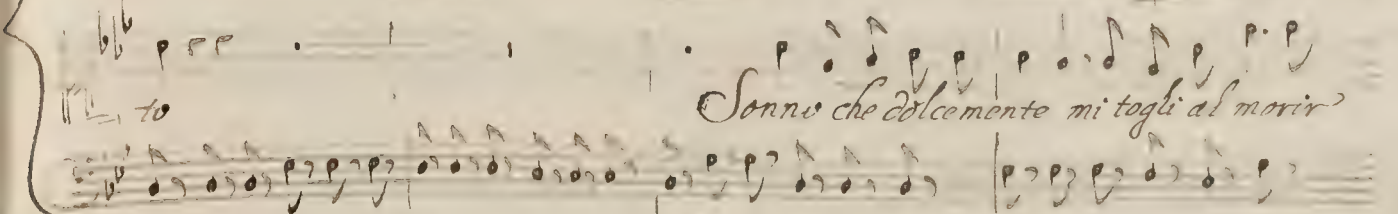 to Sonno che dolcemente mi togli al morir